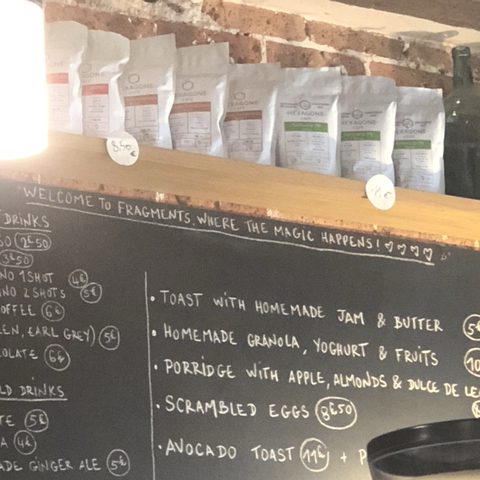 HEXAGONE
HEXAGONE
HEXAGONE
HEXAGONE
8,50
"WELCOME TO FRAGMENTS, WHERE THE MAGIC HAPPENS! ♡ ♡ ♡ ♡"
DRINKS
SO 2€50
3€50
NO 1 SHOT 4€
INO 2 SHOTS 5€
OFFEE 6€
EEN, EARL GREY) 5€
OLATE 6€
LD DRINKS
TE 5€
A 4€
ADE GINGER ALE 5€
• TOAST WITH HOMEMADE JAM & BUTTER 5€
• HOMEMADE GRANOLA, YOGHURT & FRUITS 10
• PORRIDGE WITH APPLE, ALMONDS & DULCE DE LE
• SCRAMBLED EGGS 8€50
• AVOCADO TOAST 11€ + P